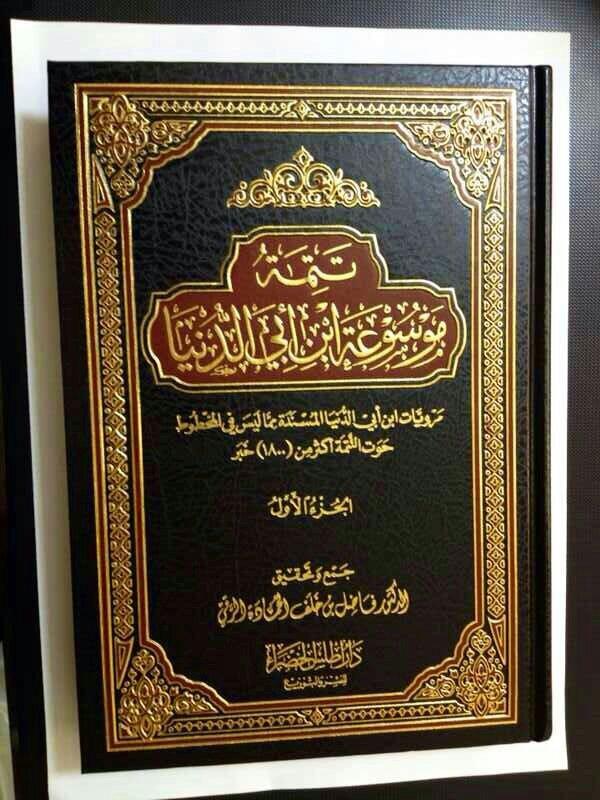 تَتِمَةُ
مَوْسُوعَة ابْن أَبِي الدُّنْيَا
مَرويَّات ابن أبي الدُنيا المُسْنَدَة ممَّا ليسَ في المخطُوط
حَوَت التَّتمَّة أكثر مِن (١٨٠٠) خَبَر
الجُزءُ الأوّلُ
جَمع وَتحقيق
الدكتور فاضل بن خلف الحمادة الرقي
دار أطلس الخضراء
للنشر والتوزيع